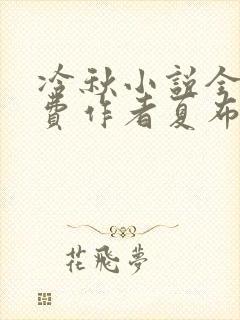 冷秋小説全
費作者夏布
花飛夢